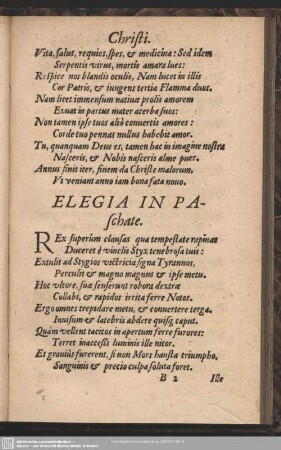 Christi.
Vita, salus, requies, spes, & medicina: Sed idem
Serpentis virus, mortis amara lues:
Respice nos blandis oculis, Nam lucet in illis
Cor Patris, & iungens tertia Flamma duos.
Nam licet immensum natiuæ prolis amorem
Exuat in partus mater acerba suos:
Non tamen ipse tuos aliò conuertis amores:
Corde tuo pennas nullus habebit amor.
Tu, quanquam Deus es, tamen hac in imagine nostra
Nasceris, & Nobis nasceris alme puer.
Annus finis iter, finem da Christe malorum,
Vt veniant anno iam bona fata nouo.
ELEGIA IN PA-
schate.
REx superûm clausas qua tempestate rapinas
Duceret è vinclis Styx tenebrosa tuis:
Extulit ad Stygios victricia signa Tyrannos,
Perculit & magno magnus & ipse metu.
Hoc vltore, sua senserunt robora dextræ
Collabi, & rapidos irrita ferre Notos.
Ergo omnes trepidare metu, & conuertere terga.
Inuisum & latebris abdere quisq; caput.
Quàm vellent tacitos in apertum ferre furores:
Terret inaccessi luminis ille nitor.
Et grauiùs furerent, si non Mors hausta triumpho,
Sanguinis & precio culpa soluta foret.
B 2 Ille